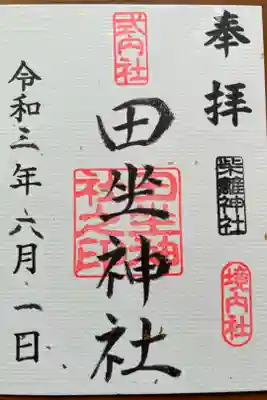 奉拝
柴籬神社
境内社
式内社
田坐神社
田坐神
社之印
令和三年六月一日